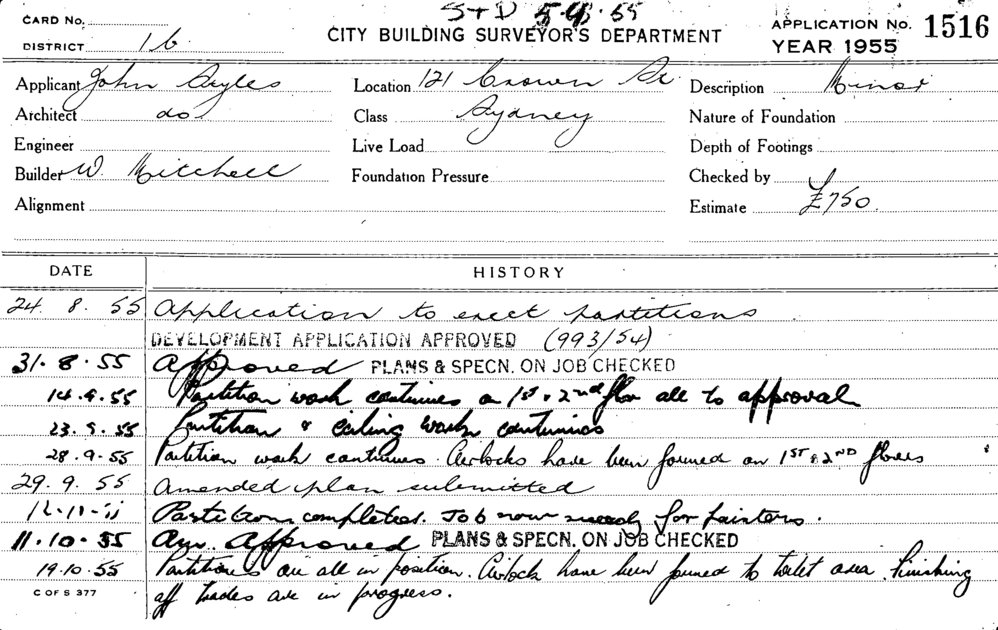 S+D 5.9.55
CARD No.
CITY BUILDING SURVEYOR'S DEPARTMENT
APPLICATION No. 1516
DISTRICT 16
YEAR 1955
Applicant John Location 121 Crown St Description Minor
Architect do Class Sydney Nature of Foundation
Engineer Live Load Depth of Footings
Builder W. Mitchell Foundation Pressure Checked by
Alignment Estimate £750.
DATE HISTORY
24. 8. 55 Application to erect partitions
DEVELOPMENT APPLICATION APPROVED (993/54)
31.8.55 Approved PLANS & SPECN. ON JOB CHECKED
14.9.55 Partition work continues on 1st & 2nd flor all to approval
23.9.55 Partition & Ceiling work continues
28.9.55 Partition work continues. Airlocks have been formed on 1ST & 2ND floors
29. 9. 55 Amended plan submitted
Partitions completed. Job now ready for painters.
11.10.55 Am. Approved PLANS & SPECN. ON JOB CHECKED
19.10.55 Partitions are all in position. Airlock have been formed to toilet area. Finishing
off trades are in progress.
C OF S 377